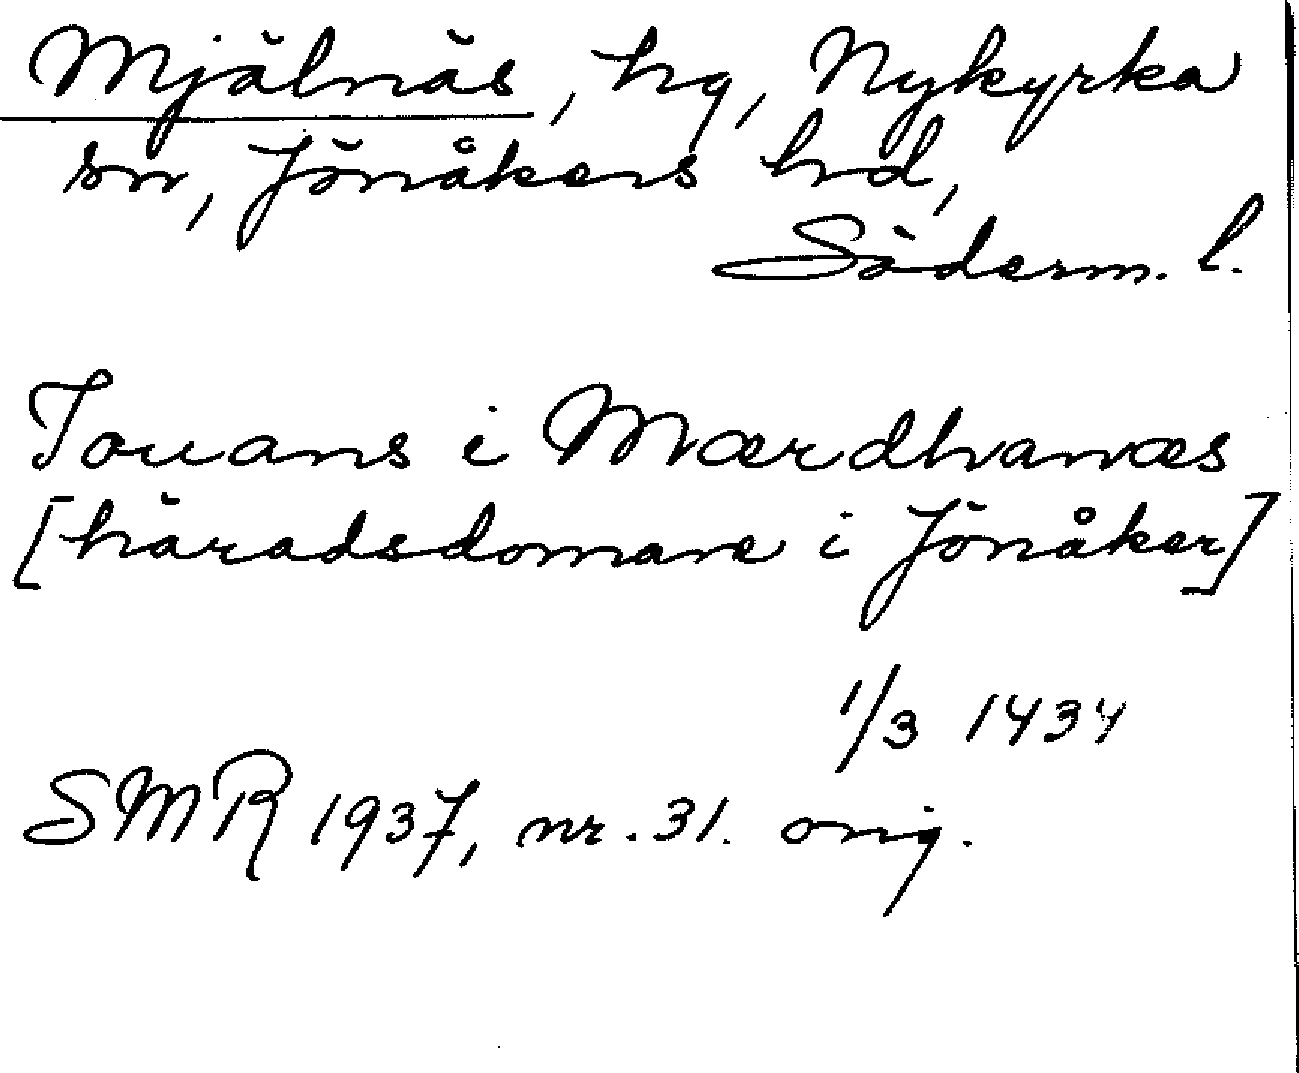 Mjälnäs, hg, Nykyrka
sn, Jönåkers hd,
Söderm. l.
Jouans i Mærdhanæs
[häradsdomare i Jönåker]
1/3 1434
SMR 1937, nr. 31. orig.